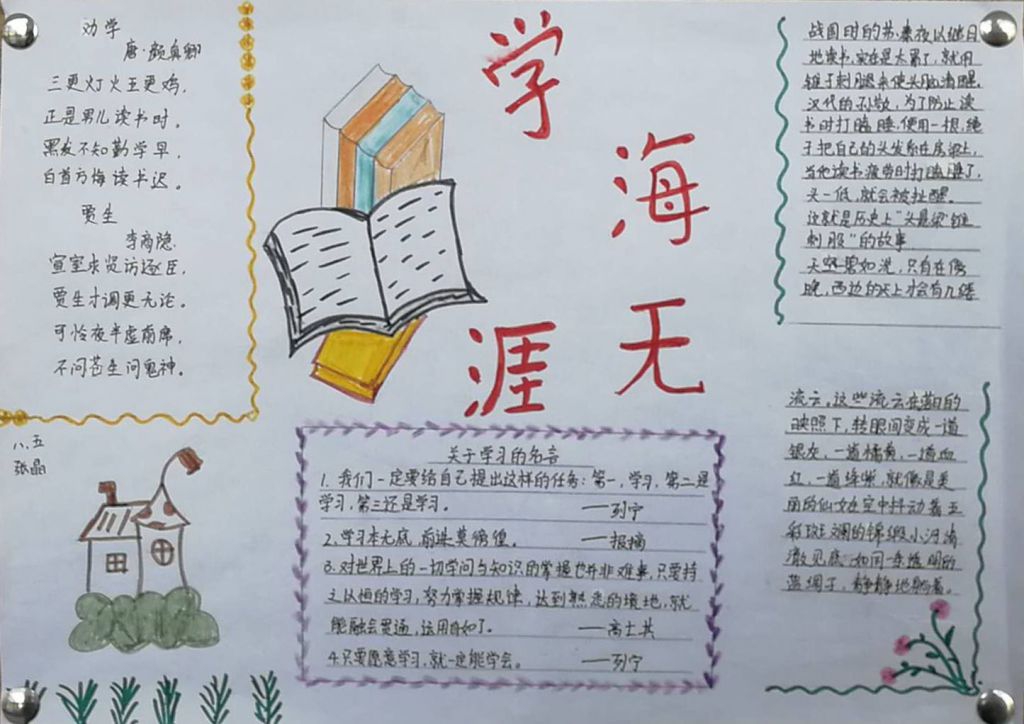 劝学
唐·颜真卿
三更灯火五更鸡，
正是男儿读书时。
黑发不知勤学早，
白首方悔读书迟。
贾生
李商隐
宣室求贤访逐臣，
贾生才调更无论。
可怜夜半虚前席，
不问苍生问鬼神。
八、五
张晶
学
海
无
涯
关于学习的名言
1、我们一定要给自己提出这样的任务：第一，学习，第二是
学习，第三还是学习。 ——列宁
2、学习本无底，前进莫彷徨。 ——报摘
3、对世界上的一切学问与知识的掌握也并非难事，只要持
之以恒的学习，努力掌握规律，达到熟悉的境地，就
能融会贯通，运用自如了。 ——高士其
4、只要愿意学习，就一定能学会。 ——列宁
战国时的苏秦夜以继日
地读书，实在是太累了，就用
锥子刺腿来使头脑清醒。
汉代的孙敬，为了防止读
书时打瞌睡，便用一根绳
子把自己的头发系在房梁上，
当他读书疲劳时打瞌睡了，
头一低，就会被扯醒。
这就是历史上“头悬梁锥
刺股”的故事
天空碧如洗，只有在傍
晚，西边的天上才会有几缕
流云。这些流云在朝日的
映照下，转眼间变成一道
银灰，一道橘黄，一道血
红，一道绛紫，就像是美
丽的仙女在空中抖动着五
彩斑斓的锦缎。小河清
澈见底，如同一条透明的
蓝绸子，静静地躺着。